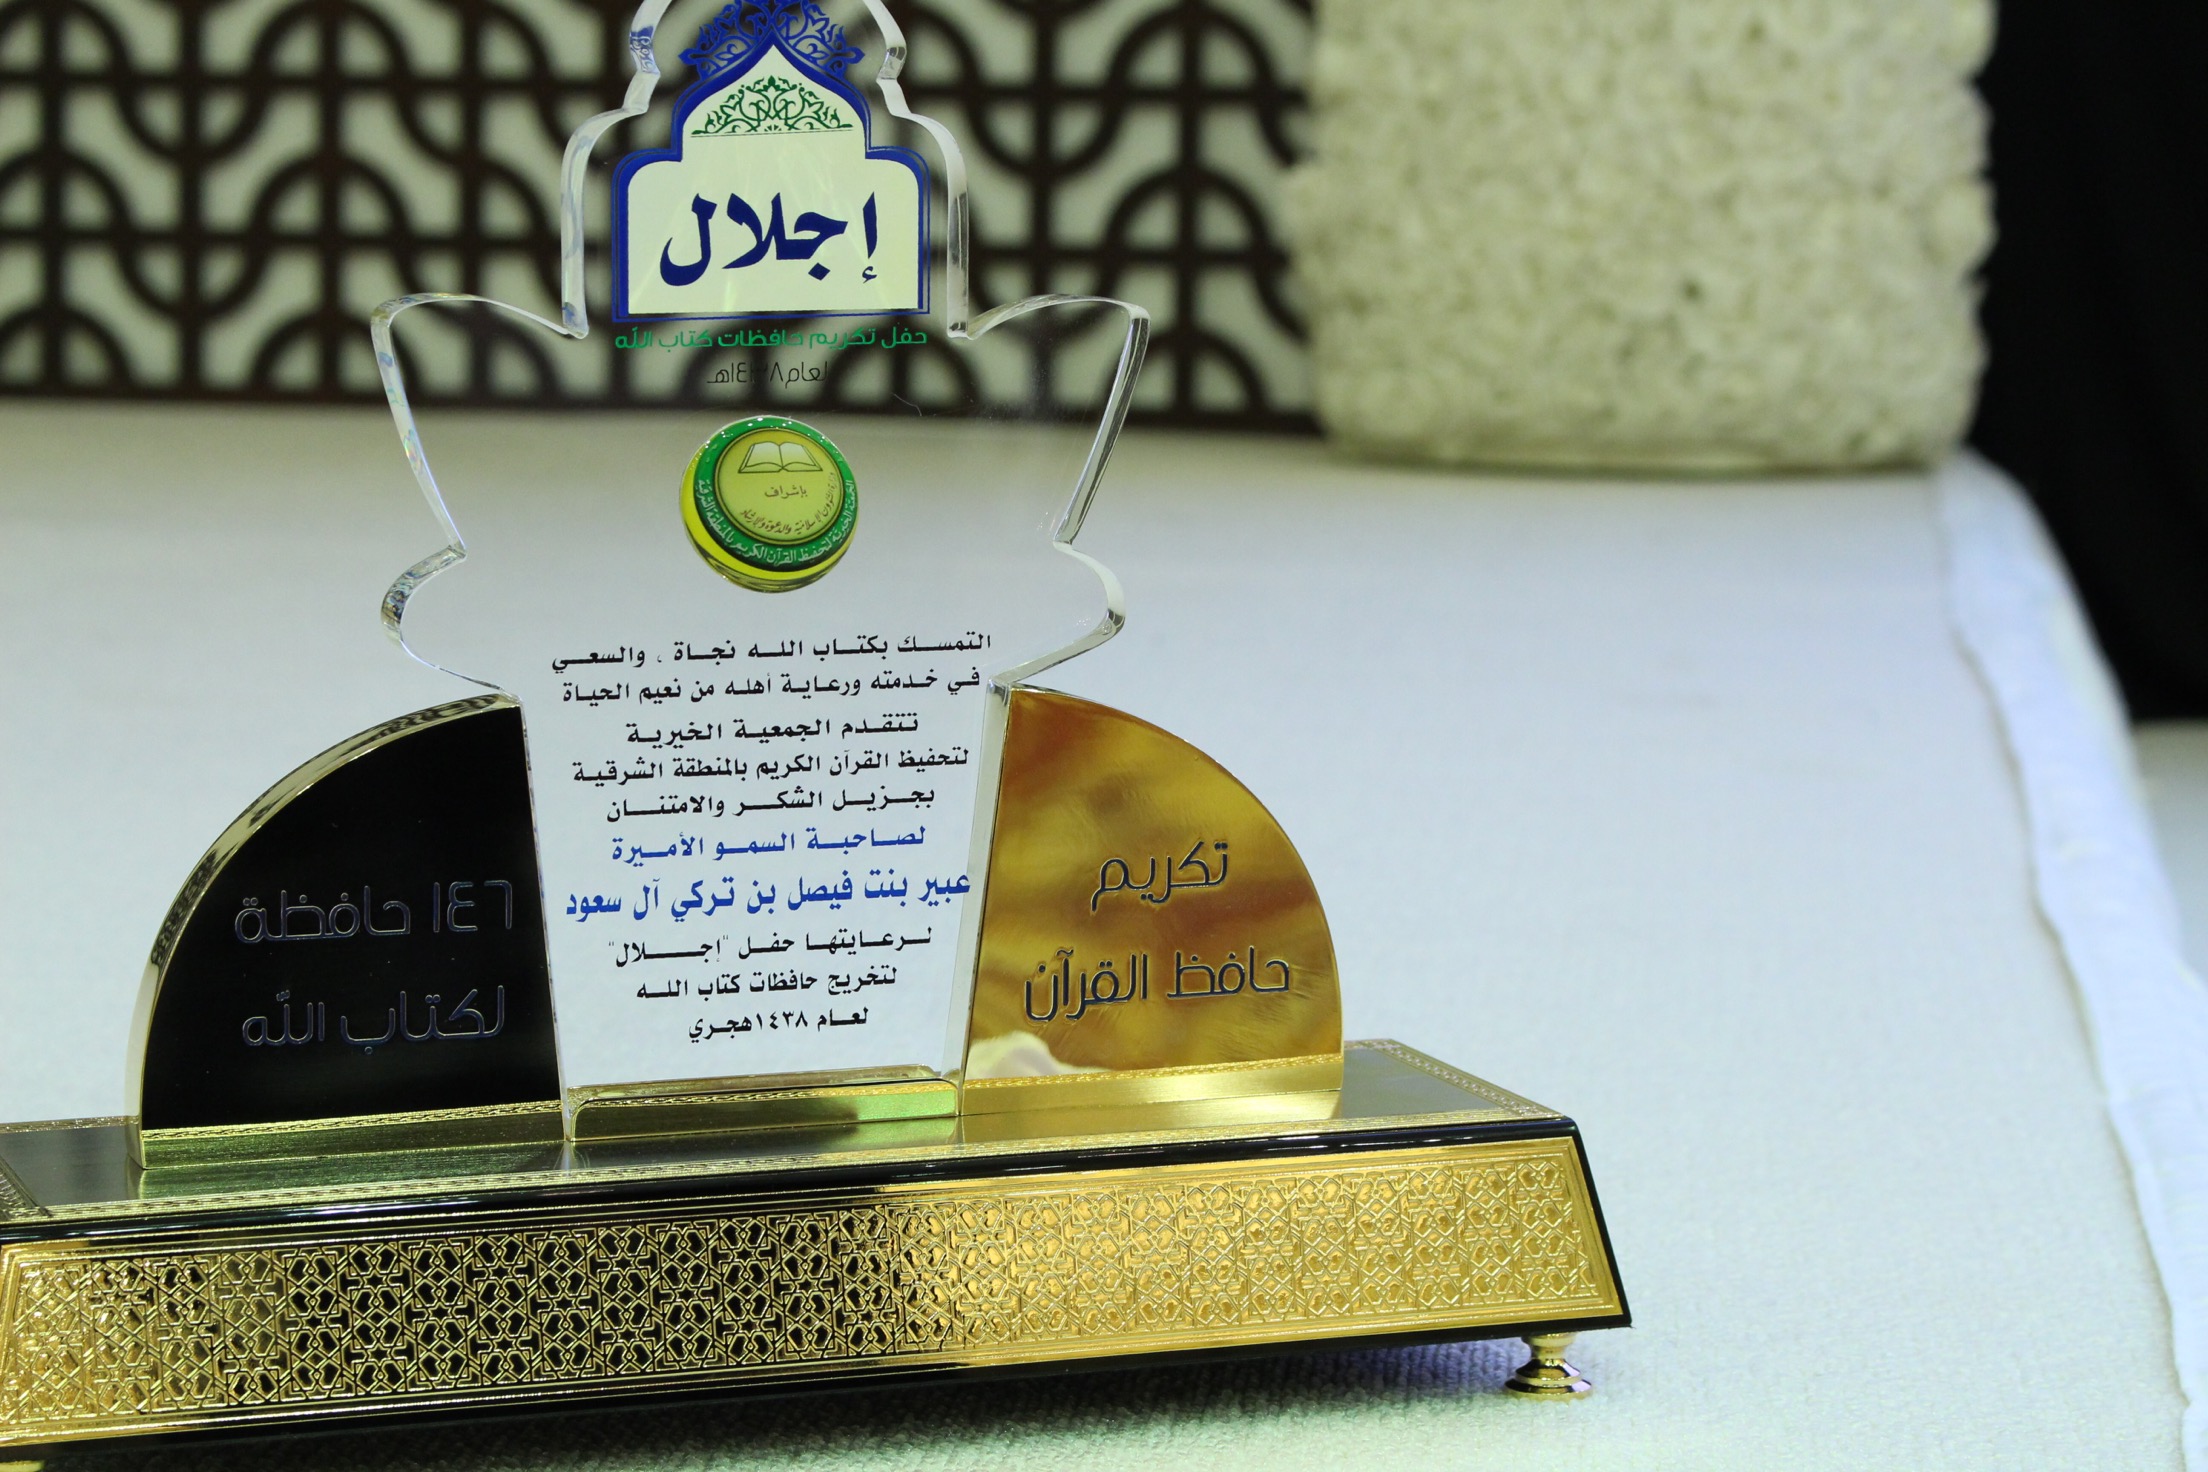 إجلال
حفل تكريم حافظات كتاب الله
لعام ١٤٣٨هـ
بإشراف
وزارة الشؤون الإسلامية والدعوة والإرشاد
الجمعية الخيرية لتحفيظ القرآن الكريم بالمنطقة الشرقية
التمسك بكتاب الله نجاة ، والسعي
في خدمته ورعاية أهله من نعيم الحياة
تتقدم الجمعية الخيرية
لتحفيظ القرآن الكريم بالمنطقة الشرقية
بجزيل الشكر والامتنان
لصاحبة السمو الأميرة
عبير بنت فيصل بن تركي آل سعود
لرعايتها حفل "إجلال"
لتخريج حافظات كتاب الله
لعام ١٤٣٨هجري
تكريم
حافظ القرآن
١٤٦ حافظة
لكتاب الله